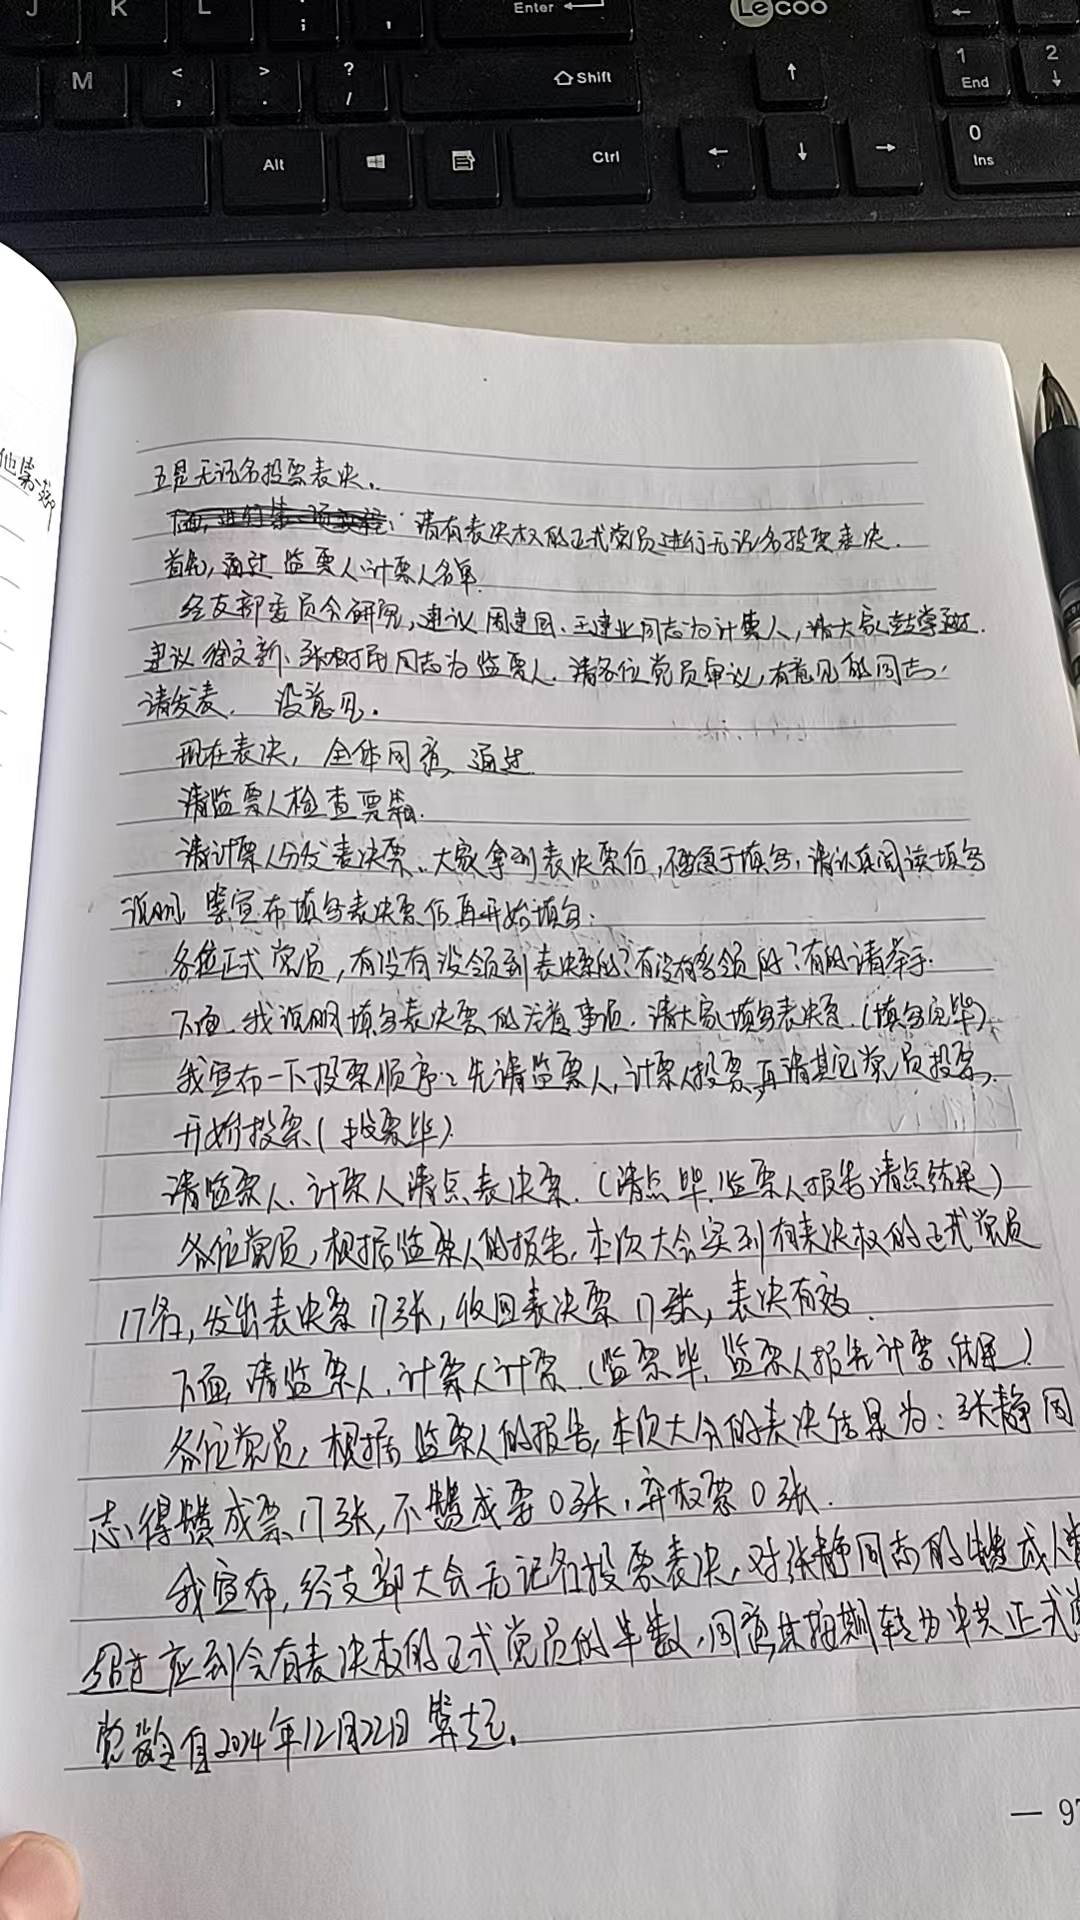 J K L ; ' Enter Lecoo
M < , > . ? / Shift ↑ 1 End 2 ↓
Alt Ctrl ← ↓ → 0 Ins
他第一好
五是无记名投票表决。
请有表决权的正式党员进行无记名投票表决.
首先,通过监票人计票人名单.
经支部委员会研究,建议周建国、王建业同志为计票人,请大家鼓掌通过.
建议徐文新、张树民同志为监票人.请各位党员审议,有意见的同志,
请发表. 没意见.
现在表决, 全体同意、通过.
请监票人检查票箱.
请计票人分发表决票.大家拿到表决票后,不要急于填写,请认真阅读填写
说明, 宣布填写表决票后再开始填写.
各位正式党员,有没有没领到表决票的?有没有多领的?有的请举手.
下面,我说明填写表决票的注意事项.请大家填写表决票.(填写完毕)
我宣布一下投票顺序:先请监票人,计票人投票,再请其它党员投票,
开始投票(投票毕).
请监票人、计票人清点表决票.(清点毕,监票人报告清点结果)
各位党员,根据监票人的报告,本次大会实到有表决权的正式党员
17名,发出表决票17张,收回表决票17张,表决有效.
下面,请监票人、计票人计票.(监票毕,监票人报告计票结果)
各位党员,根据监票人的报告,本次大会的表决结果为:张静同
志得赞成票17张,不赞成票0张,弃权票0张.
我宣布,经支部大会无记名投票表决,对张静同志的赞成人
超过应到会有表决权的正式党员的半数,同意其按期转为中共正式
党龄自2024年12月22日算起.
— 97